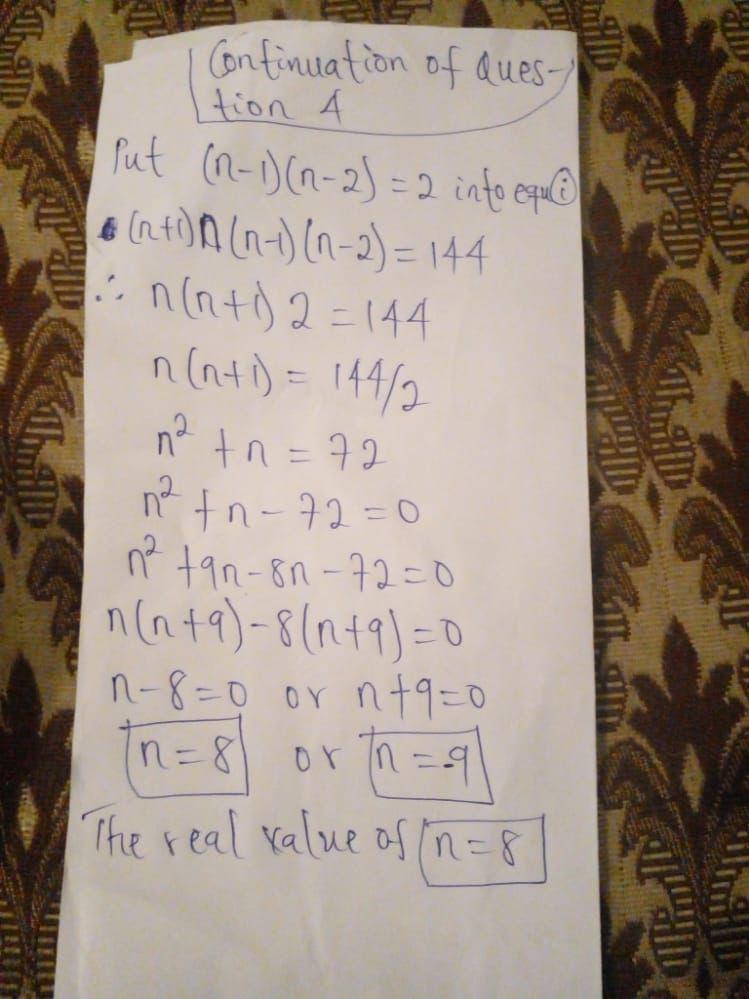 Continuation of Ques-
tion 4
Put (n-1)(n-2) = 2 into equ(i)
(n+1)n(n-1)(n-2) = 144
∴ n(n+1) 2 = 144
n(n+1) = 144/2
n² + n = 72
n² + n - 72 = 0
n² + 9n - 8n - 72 = 0
n(n+9) - 8(n+9) = 0
n - 8 = 0 or n + 9 = 0
n = 8 or n = -9
The real value of n = 8